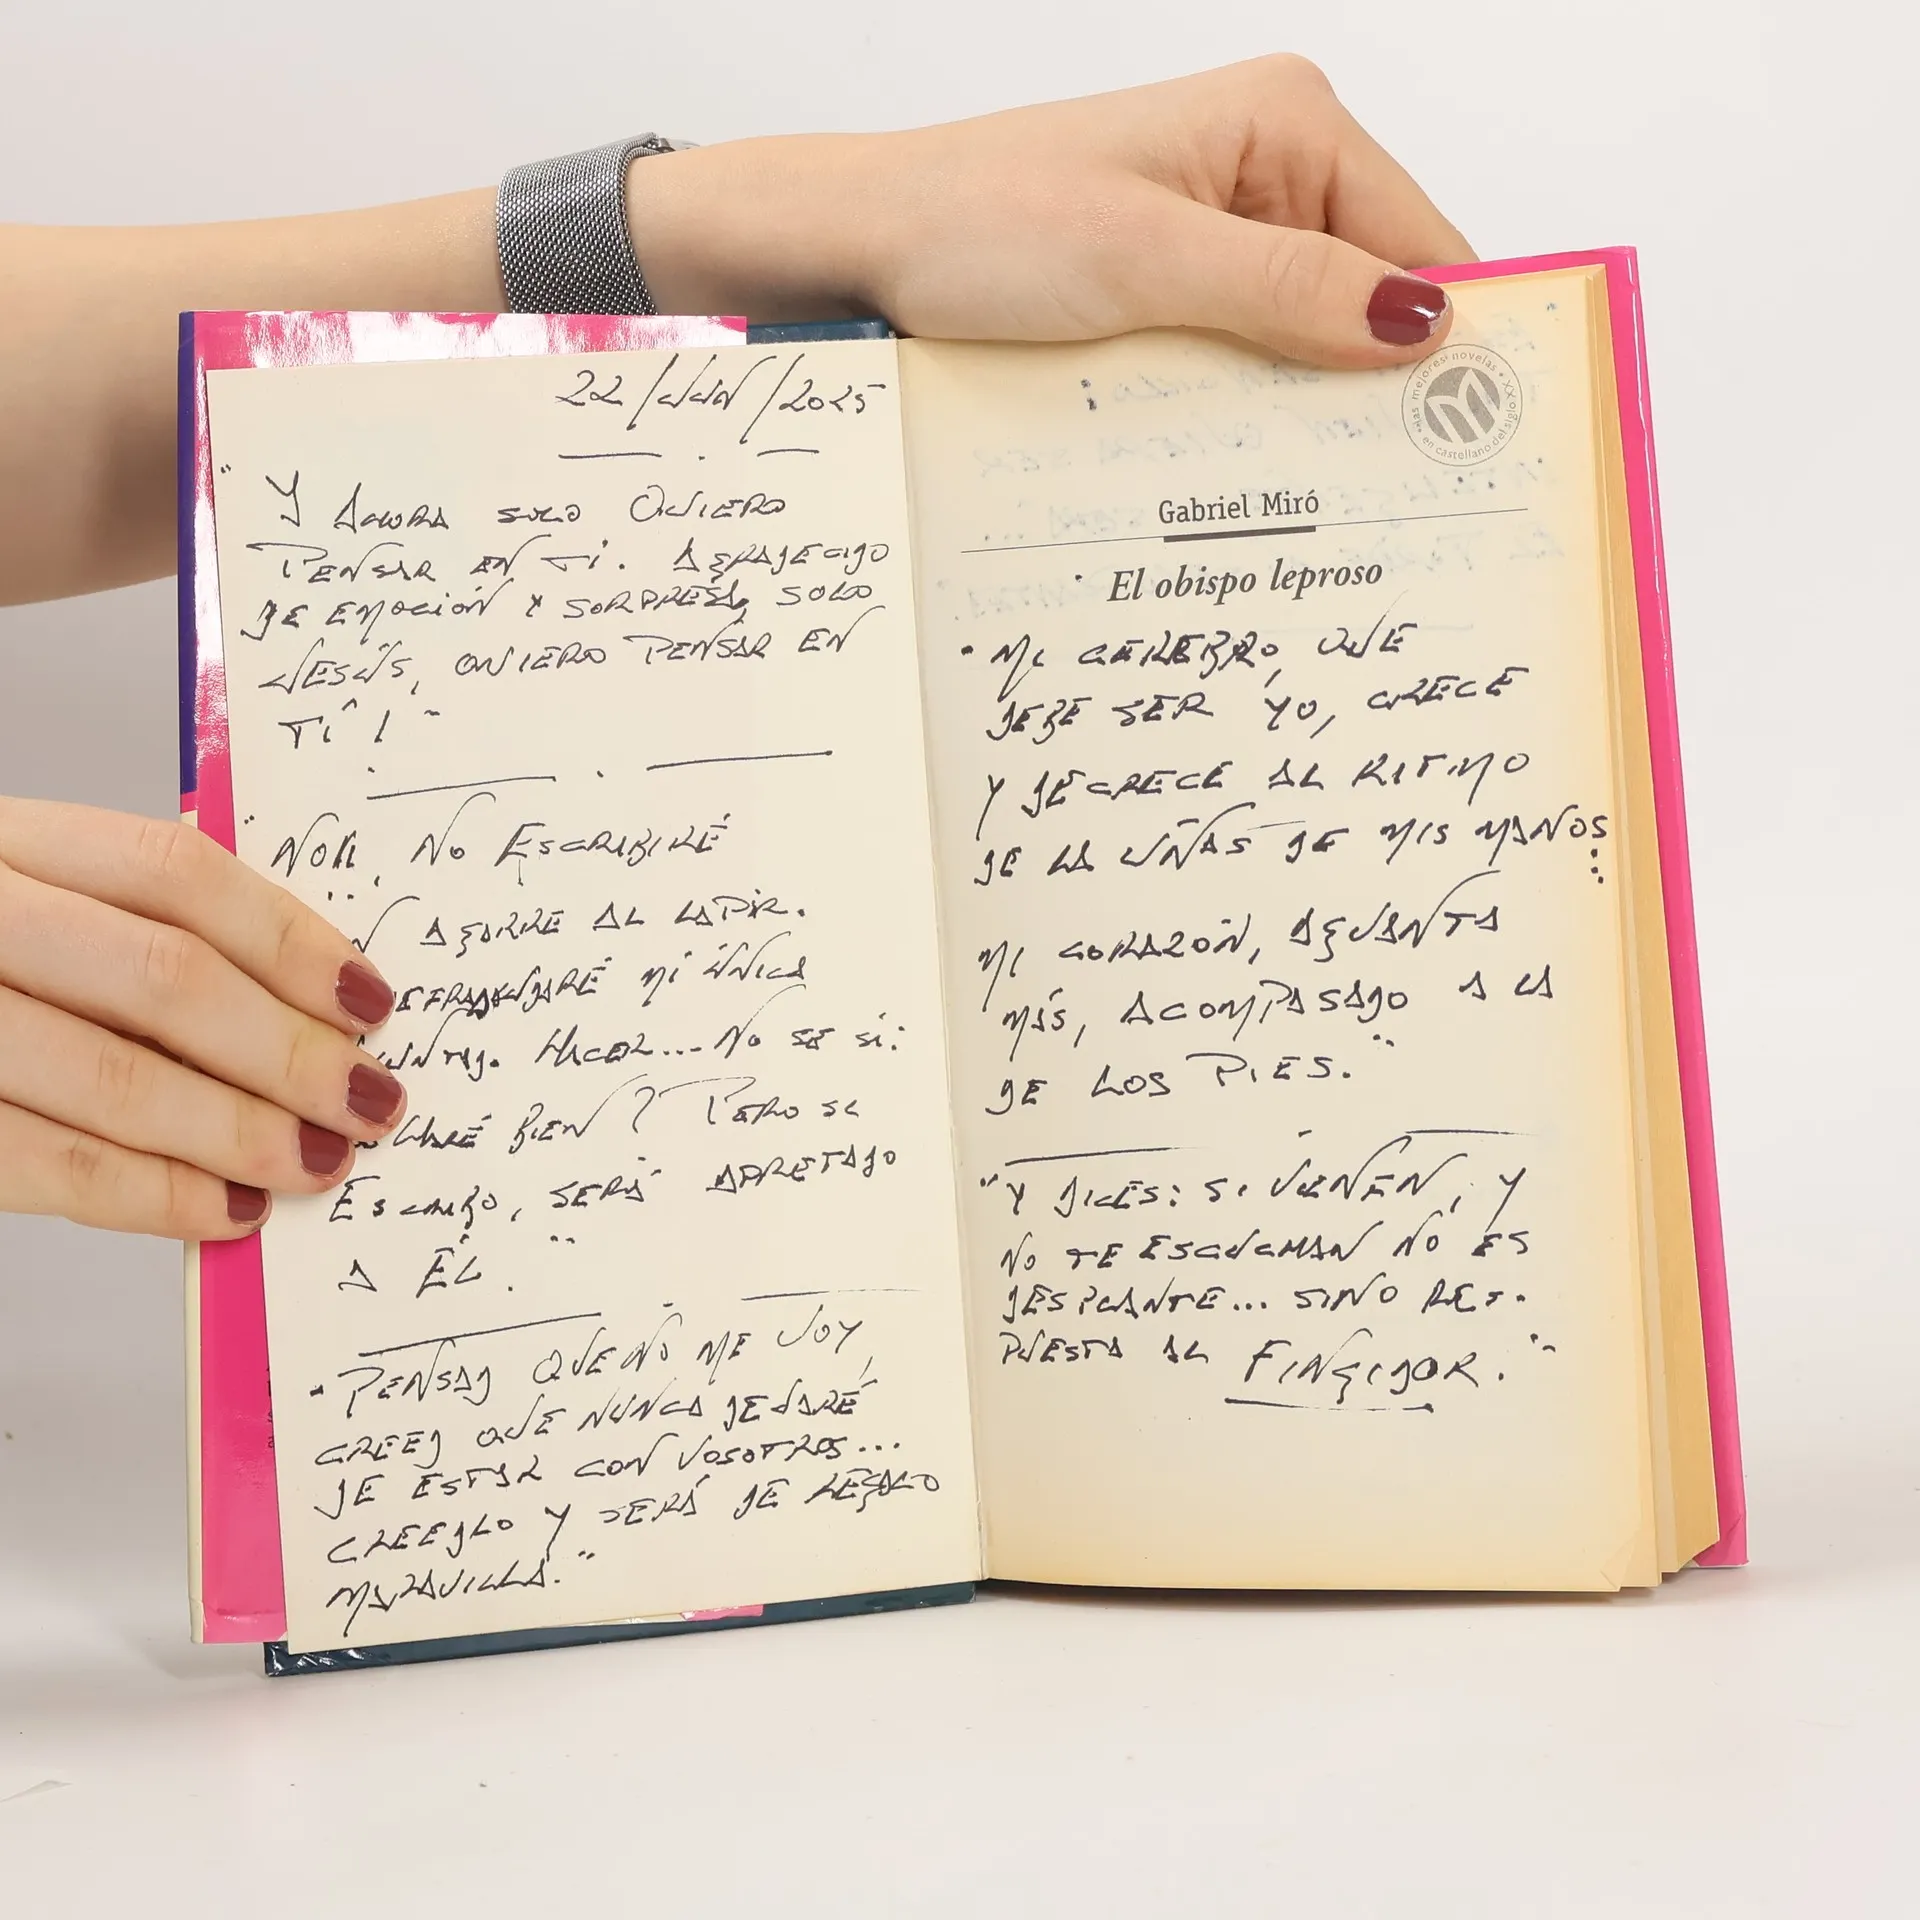 22/JUN/2025
"Y AHORA SOLO QUIERO
PENSAR EN TI. AGRADECIDO
DE EMOCIÓN Y SORPRESA, SOLO
JESÚS, QUIERO PENSAR EN
TÍ!"
NO ESCRIBIRÉ
AGARRE AL LAPIZ.
MI ÚNICA
HACER... NO SE SI:
BIEN? PERO SI
ESCRIBO, SERÁ APRETADO
A ÉL."
"PENSAD QUE NO ME VOY,
CREED QUE NUNCA DEJARÉ
DE ESTAR CON VOSOTROS...
CREEDLO Y SERÁ DE REGALO
MARAVILLA."
las mejores novelas en castellano del siglo XX
Gabriel Miró
El obispo leproso
"MI CEREBRO, QUE
DEBE SER YO, CRECE
Y DECRECE AL RITMO
DE LA UÑAS DE MIS MANOS
MI CORAZÓN, AGUANTA
MÁS, ACOMPASADO A LA
DE LOS PIES."
"Y DICES: SI VIENEN, Y
NO TE ESCUCHAN NO ES
DESPLANTE... SINO RES-
PUESTA AL FINGIDOR."